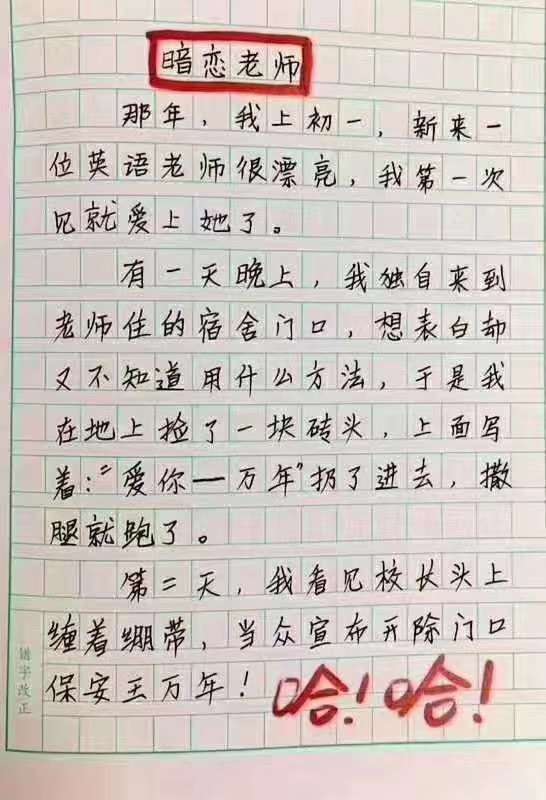 暗恋老师
那年，我上初一，新来一
位英语老师很漂亮，我第一次
见就爱上她了。
有一天晚上，我独自来到
老师住的宿舍门口，想表白却
又不知道用什么方法，于是我
在地上捡了一块砖头，上面写
着：“爱你一万年”扔了进去，撒
腿就跑了。
第二天，我看见校长头上
缠着绷带，当众宣布开除门口
保安王万年！
哈！哈！
错字改正